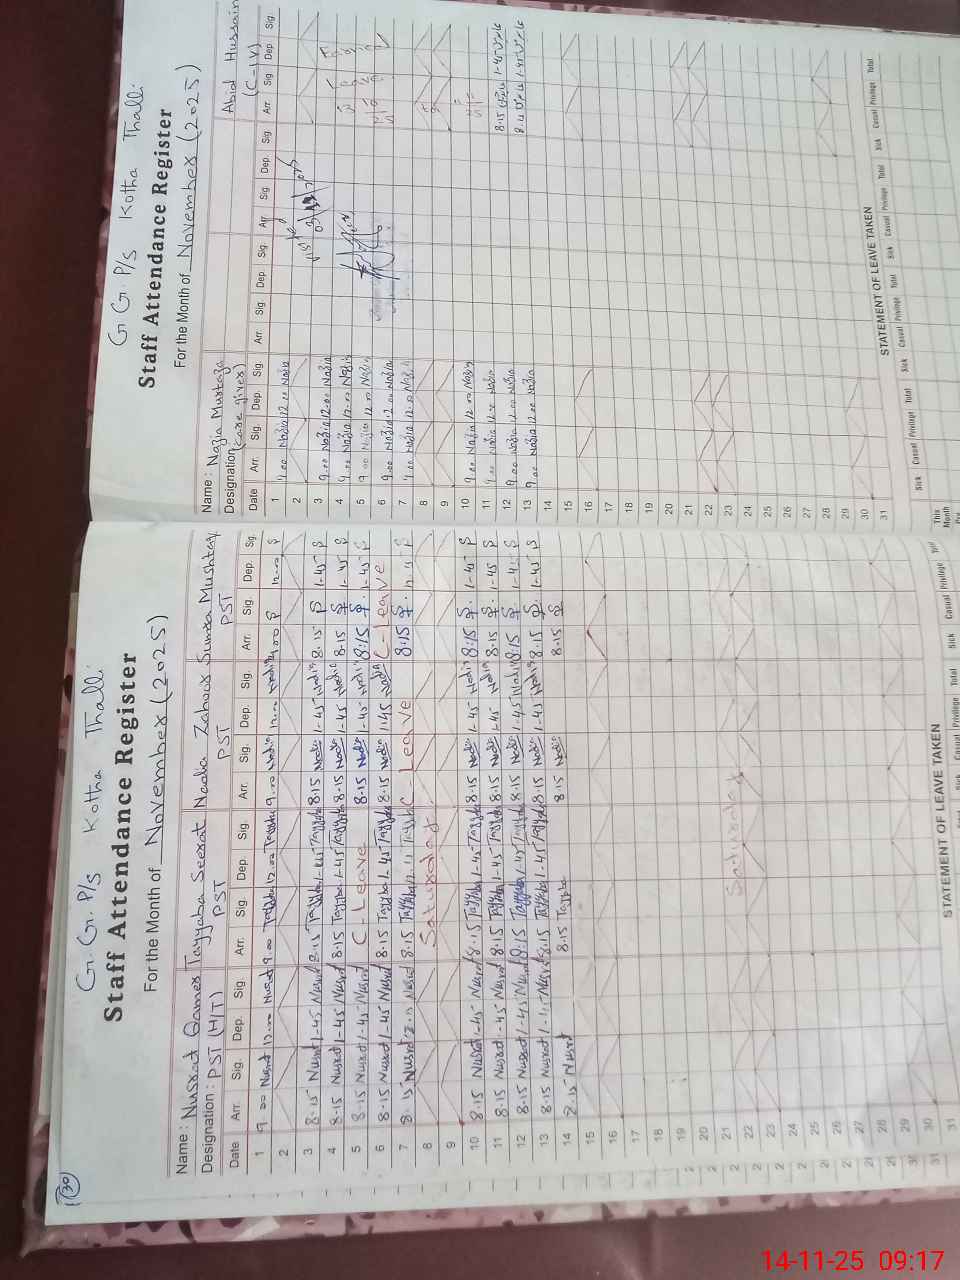 30
G.G.P/S Kotha Thalli
Staff Attendance Register
For the Month of November (2025)
Name : Nusrat Qamer Tayyaba Seerat Nadia Zahoor Sumra Mushtaq
Designation : PST (H/T) PST PST PST
Date Arr. Sig. Dep. Sig Arr. Sig. Dep. Sig. Arr. Sig. Dep. Sig. Arr. Sig. Dep. Sig.
1 9.00 Nusrat 12.00 Nusrat 9.00 Tayyaba 12.00 Tayyaba 9.00 Nadia 12.00 Nadia 9.00 12.00
2
3 8.15 Nusrat 1-45 Nusrat 8.15 Tayyaba 1-45 Tayyaba 8.15 Nadia 1-45 Nadia 8.15 1-45
4 8.15 Nusrat 1-45 Nusrat 8.15 Tayyaba 1-45 Tayyaba 8.15 Nadia 1-45 Nadia 8.15 1-45
5 8.15 Nusrat 1-45 Nusrat C-Leave 8.15 Nadia 1-45 Nadia 8.15 1-45
6 8.15 Nusrat 1-45 Nusrat 8.15 Tayyaba 1-45 Tayyaba 8.15 Nadia 1.45 Nadia C-Leave
7 8.15 Nusrat Nusrat 8.15 Tayyaba Tayyaba C-Leave 8.15
8 Saturday
9
10 8.15 Nusrat 1-45 Nusrat 8.15 Tayyaba 1-45 Tayyaba 8.15 Nadia 1-45 Nadia 8.15 1-45
11 8.15 Nusrat 1-45 Nusrat 8.15 Tayyaba 1-45 Tayyaba 8.15 Nadia 1-45 Nadia 8.15 1-45
12 8.15 Nusrat 1-45 Nusrat 8.15 Tayyaba 1-45 Tayyaba 8.15 Nadia 1-45 Nadia 8.15 1-45
13 8.15 Nusrat Nusrat 8.15 Tayyaba 1-45 Tayyaba 8.15 Nadia 1-45 Nadia 8.15 1-45
14 8.15 Nusrat 8.15 Tayyaba 8.15 Nadia 8.15
15
16
17
18
19
20
21
22 Saturday
23
24
25
26
27
28
29
30
31
STATEMENT OF LEAVE TAKEN
Casual Privilege Total Sick Casual Privilege
G G. P/S Kotha Thalli
Staff Attendance Register
For the Month of November (2025)
Name : Nazia Mustafa Abid Hussain
Designation (care giver) (C-IV)
Date Arr. Sig. Dep. Sig. Arr. Sig Dep Sig Arr. Sig Dep. Sig Arr. Sig Dep Sig.
1 9.00 Nazia 12.00 Nazia
2
3 9.00 Nazia 12.00 Nazia
4 9.00 Nazia 12.00 Nazia
5 9.00 Nazia 12.00 Nazia
6 9.00 Nazia 12.00 Nazia
7 9.00 Nazia 12.00 Nazia
8
9
10 9.00 Nazia 12.00 Nazia
11 9.00 Nazia 12.00 Nazia
12 9.00 Nazia 12.00 Nazia 8.15 1-45
13 9.00 Nazia 12.00 Nazia 8.15 1-45
14
15
16
17
18
19
20
21
22
23
24
25
26
27
28
29
30
31
STATEMENT OF LEAVE TAKEN
Sick Casual Privilege Total Sick Casual Privilege Total Sick Casual Privilege Total Sick Casual Privilege Total
This
Month
14-11-25 09:17